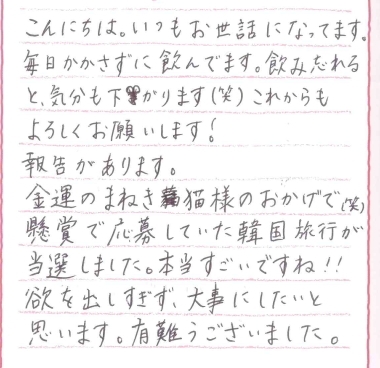 こんにちは。いつもお世話になってます。
毎日かかさずに飲んでます。飲み忘れる
と、気分も下がります(笑)これからも
よろしくお願いします!
報告があります。
金運のまねき猫様のおかげで(笑)
懸賞で応募していた韓国旅行が
当選しました。本当すごいですね!!
欲を出しすぎず、大事にしたいと
思います。有難うございました。